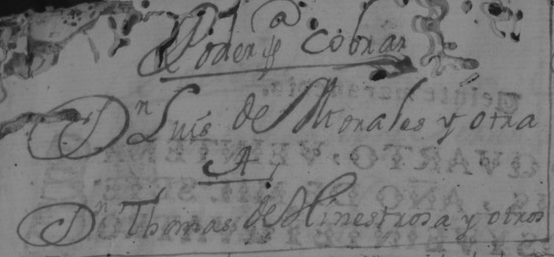 Poder pª cobrar
Dn Luis de Morales y otra
A
Dn Thomas de Hinestrosa y otros